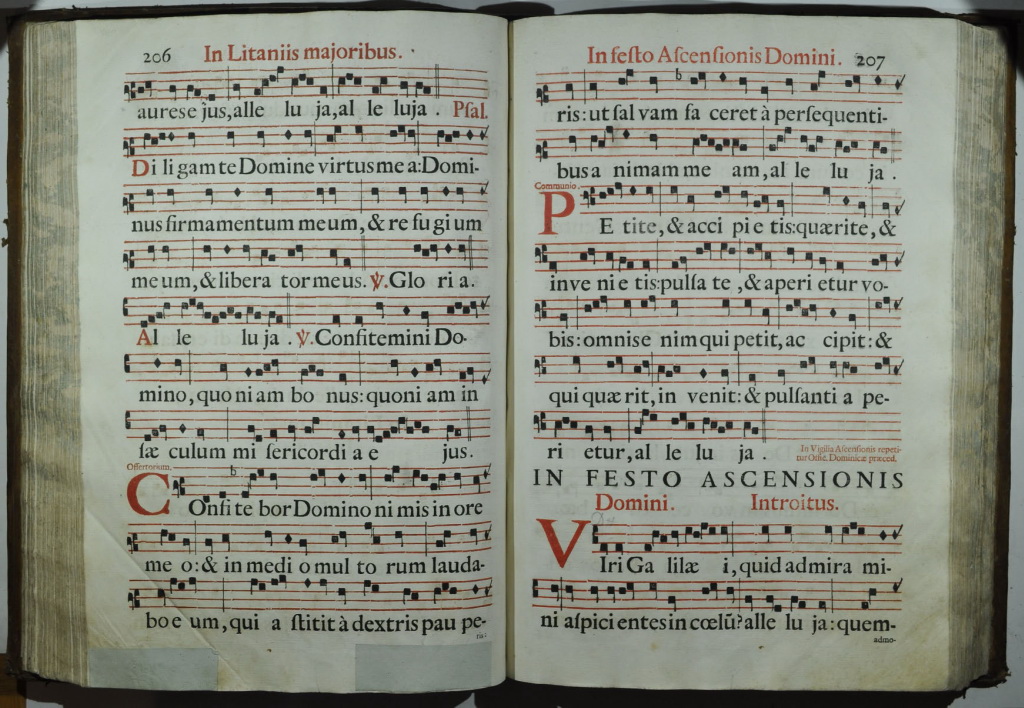 206 In Litaniis majoribus.
aurese jus, alle lu ja, al le luja. Pſal.
Di li gam te Domine virtus me a: Domi-
nus firmamentum meum, & re fu gi um
me um, & libera tor meus. ℣. Glo ri a.
Al le lu ja. ℣. Confitemini Do-
mino, quo ni am bo nus: quoni am in
ſæ culum mi ſericordi a e jus.
Offertorium.
COnfi te bor Domino ni mis in ore
me o: & in medi o mul to rum lauda-
bo e um, qui a ſtitit à dextris pau pe-
ris:
In feſto Aſcenſionis Domini. 207
ris: ut ſal vam fa ceret à perſequenti-
bus a nimam me am, al le lu ja.
Communio.
PE tite, & acci pi e tis: quærite, &
inve ni e tis: pulſa te, & aperi etur vo-
bis: omnis e nim qui petit, ac cipit: &
qui quæ rit, in venit: & pulſanti a pe-
ri etur, al le lu ja.
In Vigilia Aſcenſionis repeti-
tur Offic. Dominicæ præced.
IN FESTO ASCENSIONIS
Domini. Introitus.
VIri Ga lilæ i, quid admira mi-
ni aſpici entes in cœlū? alle lu ja: quem-
admo-